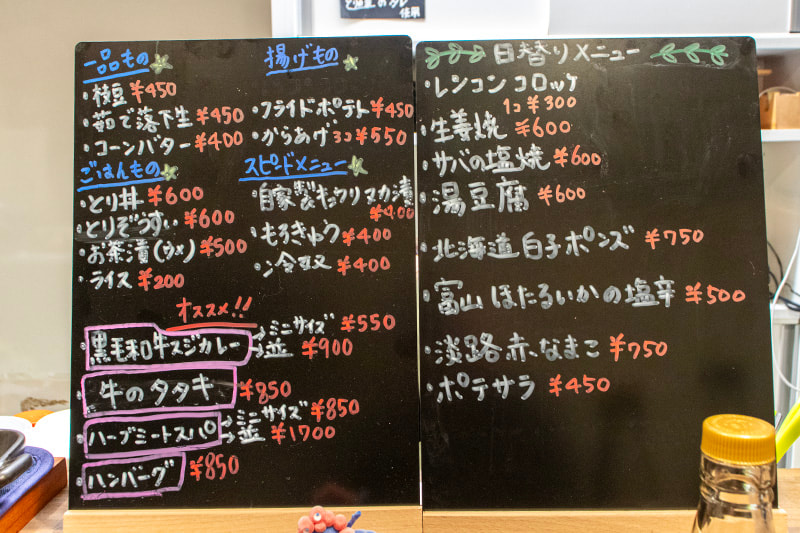 と地豆のタレ
使用
一品もの
・枝豆 ¥450
・茹で落下生 ¥450
・コーンバター ¥400
ごはんもの
・とり丼 ¥600
・とりぞうすい ¥600
・お茶漬(ウメ) ¥500
・ライス ¥200
揚げもの
・フライドポテト ¥450
・からあげ 3コ ¥550
スピードメニュー
・自家製キュウリヌカ漬
¥400
・もろきゅう ¥400
・冷奴 ¥400
オススメ!!
・黒毛和牛スジカレー →ミニサイズ ¥550
→並 ¥900
・牛のタタキ ¥850
・ハーブミートスパ →ミニサイズ ¥850
→並 ¥1700
・ハンバーグ ¥850
日替りメニュー
・レンコンコロッケ
1コ ¥300
・生姜焼 ¥600
・サバの塩焼 ¥600
・湯豆腐 ¥600
・北海道白子ポンズ ¥750
・富山ほたるいかの塩辛 ¥500
・淡路赤なまこ ¥750
・ポテサラ ¥450